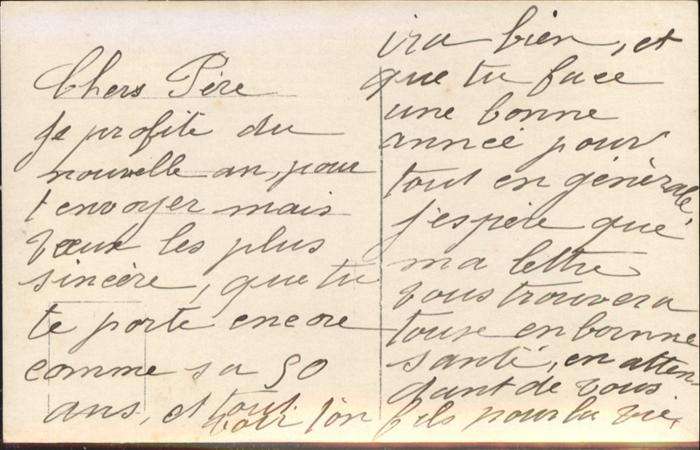 Chers Père
je profite du
nouvelle an, pour
t envoyer mais
vœux les plus
sincère, que tu
te porte encore
comme sa 50
ans, et tout
ira bien, et
que tu face
une bonne
année pour
tout en générale,
j'espère que
ma lettre
vous trouvera
tous en bonne
santé, en atten
dant de vous
voir ton fils pour la vie